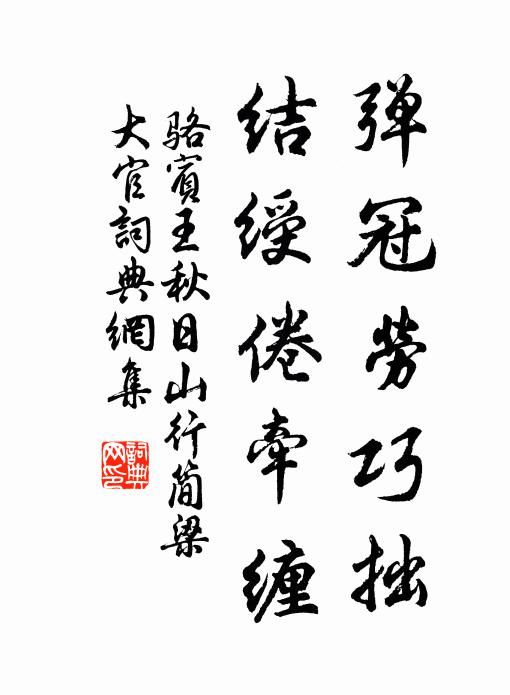 弹冠勞巧拙
结綬倦牽缠
骆賓王秋日山行简梁
大官詞典網集
詞典
网印